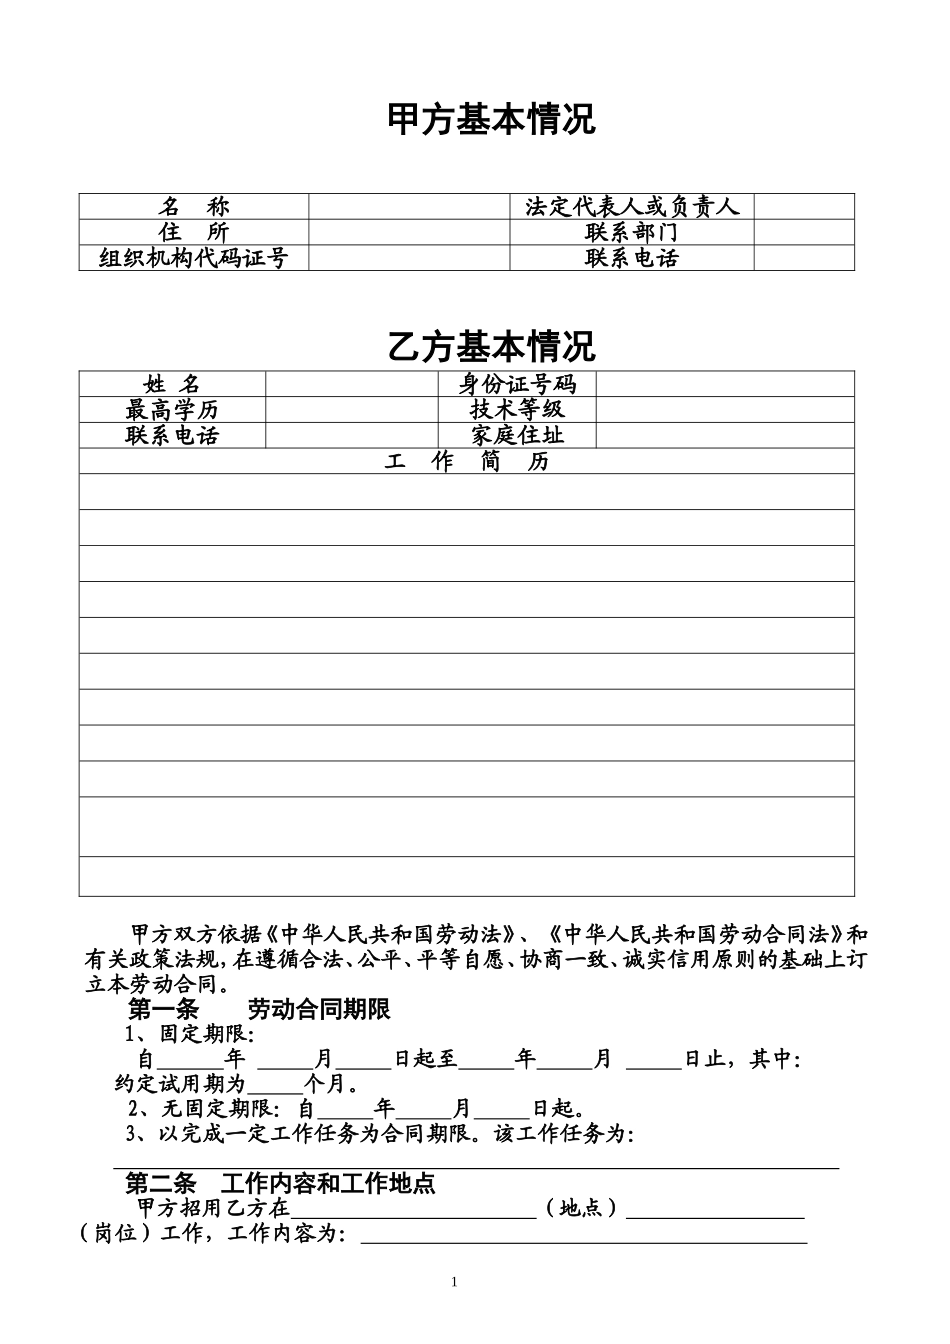 甲方基本情况
名 称 法定代表人或负责人
住 所 联系部门
组织机构代码证号 联系电话
乙方基本情况
姓 名 身份证号码
最高学历 技术等级
联系电话 家庭住址
工 作 简 历
甲方双方依据《中华人民共和国劳动法》、《中华人民共和国劳动合同法》和
有关政策法规,在遵循合法、公平、平等自愿、协商一致、诚实信用原则的基础上订
立本劳动合同。
第一条 劳动合同期限
1、固定期限：
自______年 _____月_____日起至_____年_____月 _____日止，其中：
约定试用期为_____个月。
2、无固定期限：自_____年_____月_____日起。
3、以完成一定工作任务为合同期限。该工作任务为：
第二条 工作内容和工作地点
甲方招用乙方在______________________（地点）________________
（岗位）工作，工作内容为：________________________________________
1